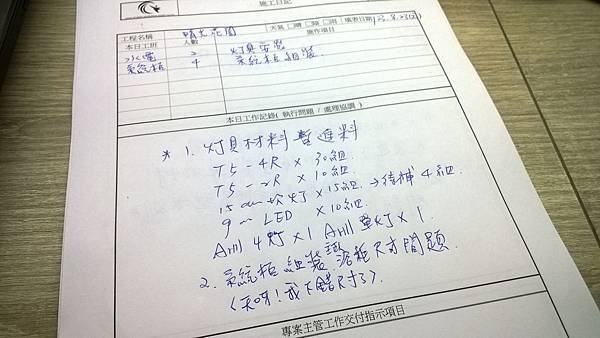 施工日記
工程名稱 晴光花園 天氣 □晴 □陰 □雨 填表日期
本日工班 人數 施作項目
水電 2 灯具安裝
系統柜 4 系統柜組裝
本日工作記錄( 執行問題 / 處理協調 )
* 1. 灯具材料暫進料
T5-4R × 30組
T5-2R × 10組
15cm 坎灯 × 15組 → 待補4組
9cm LED × 10組
AR111 4灯 × 1 AR111 單灯 × 1
2. 系統柜組裝 浴柜尺寸問題
(天呀!我下錯尺寸了)
專案主管工作交付指示項目